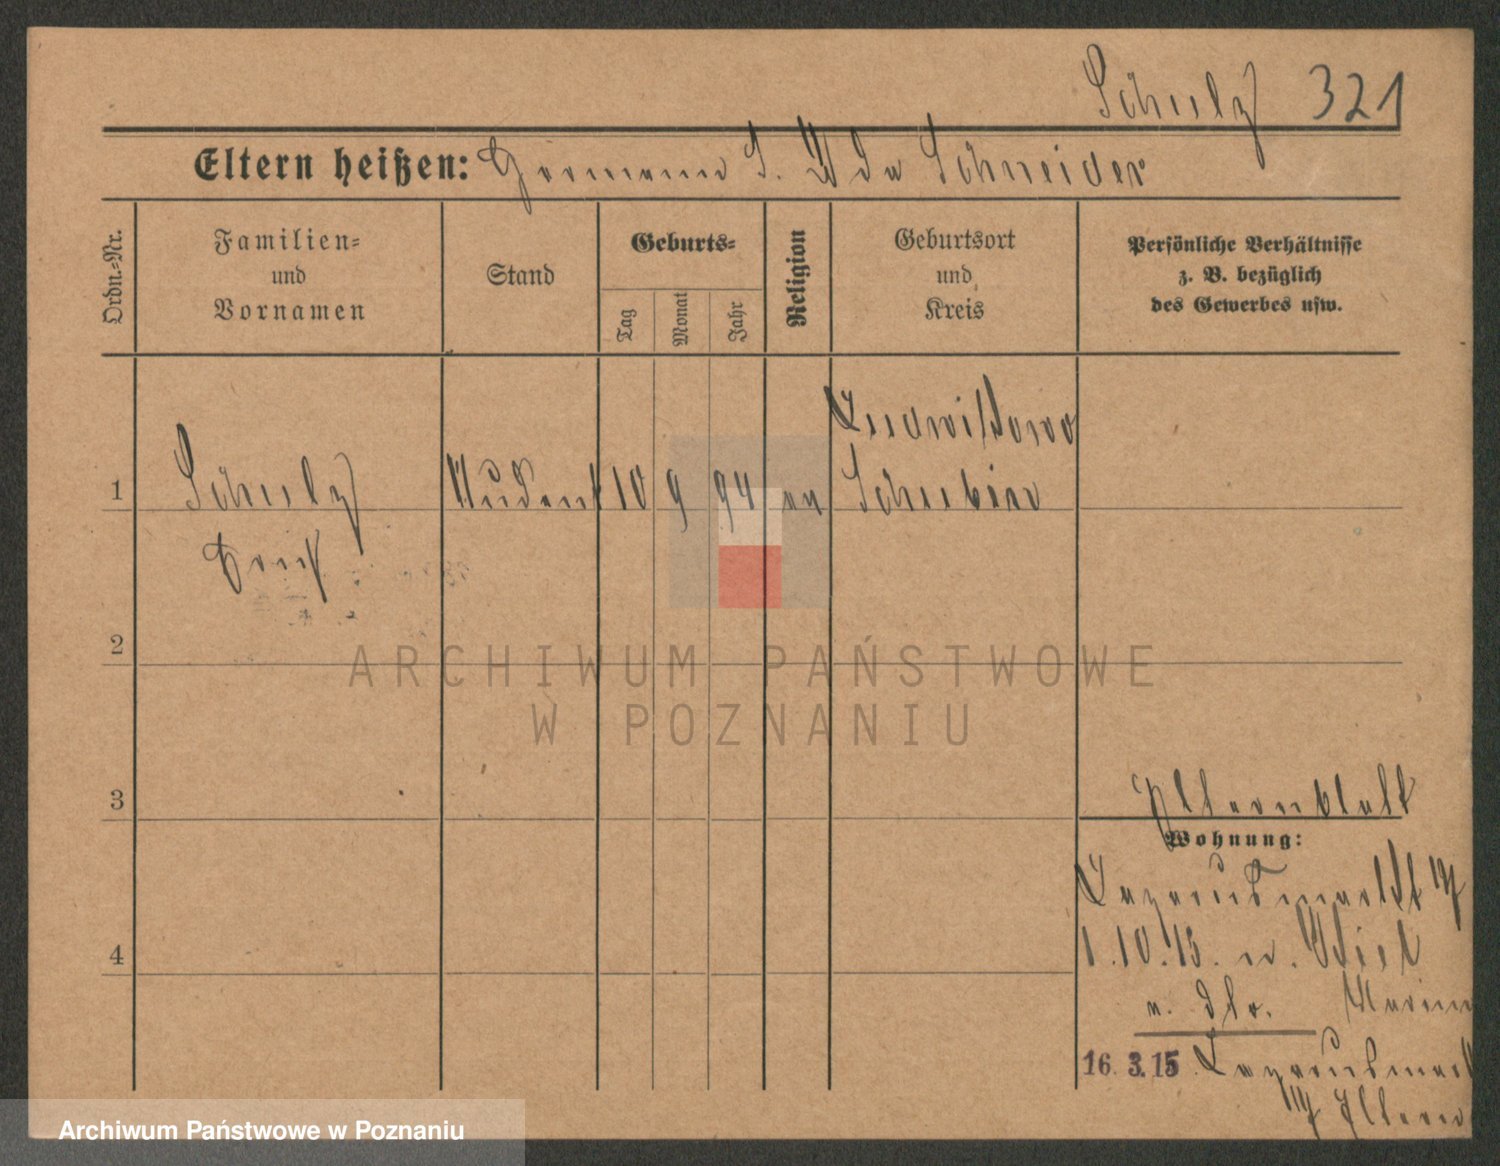 Schulz 321
Eltern heißen: Hermann S. Ida Schneider
Ordn.-Nr.
Familien-
und
Vornamen
Stand
Geburts-
Tag
Monat
Jahr
Religion
Geburtsort
und
Kreis
Persönliche Verhältnisse
z. B. bezüglich
des Gewerbes usw.
Ludwikowo
1 Schulz Student 10 9 94 ev Schubin
Erich
2
3
Elternblatt
Wohnung:
Lazarusmarkt
4
1.10.13. n. Kiel
a. d. Marine
16. 3. 15 Lazarusmark
Eltern
ARCHIWUM PAŃSTWOWE
W POZNANIU
Archiwum Państwowe w Poznaniu